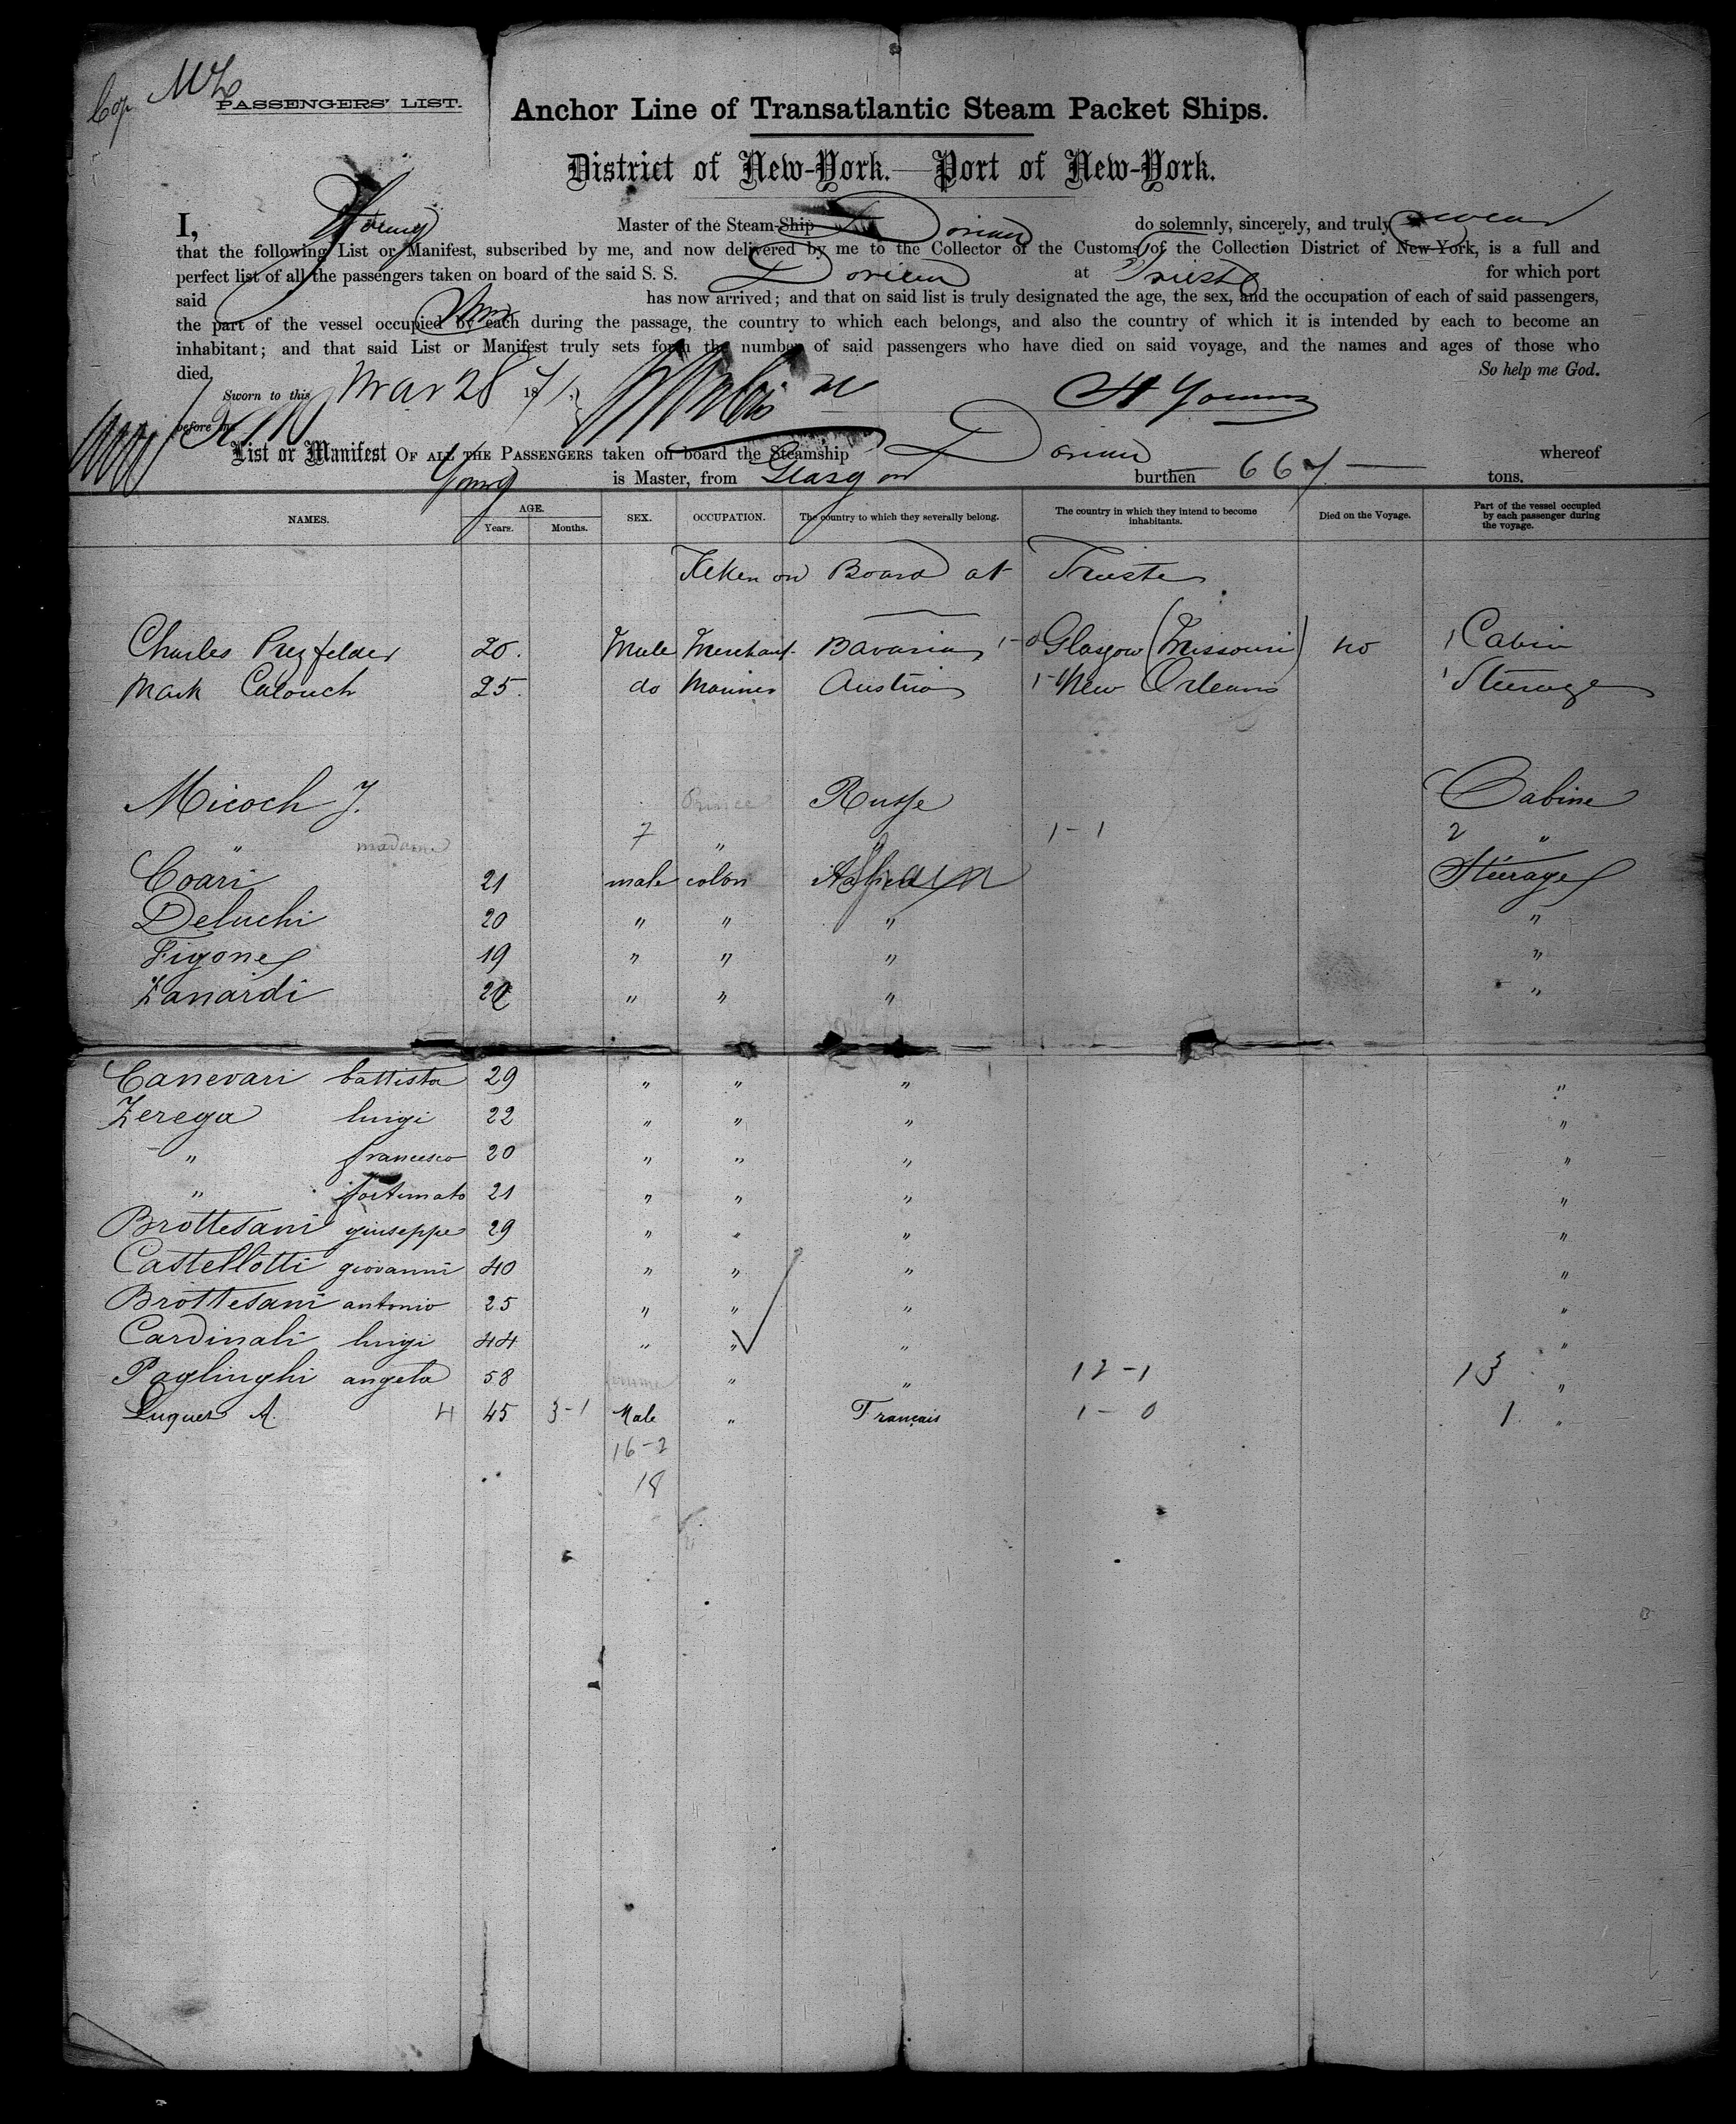 Cop
PASSENGERS' LIST.
Anchor Line of Transatlantic Steam Packet Ships.
District of New-York.—Port of New-York.
I, Young Master of the Steam-Ship Dorian do solemnly, sincerely, and truly swear
that the following List or Manifest, subscribed by me, and now delivered by me to the Collector of the Customs of the Collection District of New York, is a full and
perfect list of all the passengers taken on board of the said S. S. Dorian at Trieste for which port
said has now arrived; and that on said list is truly designated the age, the sex, and the occupation of each of said passengers,
the part of the vessel occupied by each during the passage, the country to which each belongs, and also the country of which it is intended by each to become an
inhabitant; and that said List or Manifest truly sets forth the number of said passengers who have died on said voyage, and the names and ages of those who
died. So help me God.
Sworn to this Mar 28 1871. H Young
before me
List or Manifest OF ALL THE PASSENGERS taken on board the Steamship Dorian whereof
Young is Master, from Glasgow burthen 667 tons.
NAMES. AGE. Years. Months. SEX. OCCUPATION. The country to which they severally belong. The country in which they intend to become inhabitants. Died on the Voyage. Part of the vessel occupied by each passenger during the voyage.
Taken on Board at Trieste
Charles Prezfelder 20. Male Merchant Bavaria 1-0 Glasgow (Missouri) no 1 Cabin
Mark Calouch 25. do Mariner Austria 1- New Orleans 1 Steerage
Micoch J. Prince Russe Cabine
" madame 7 " " 1-1 2 "
Coari 21 male colon Steerage
Deluchi 20 " " " "
Figone 19 " " " "
Zanardi " " " "
Canevari battista 29 " " " "
Zerega luigi 22 " " " "
" francesco 20 " " " "
" fortunato 21 " " " "
Brottesani giuseppe 29 " " " "
Castellotti giovanni 40 " " " "
Brottesani antonio 25 " " " "
Cardinali luigi 44 " " " "
Paglinghi angela 58 femme " " 12-1 13 "
Luquet A. 4 45 3-1 Male " Français 1-0 1 "
16-2
18